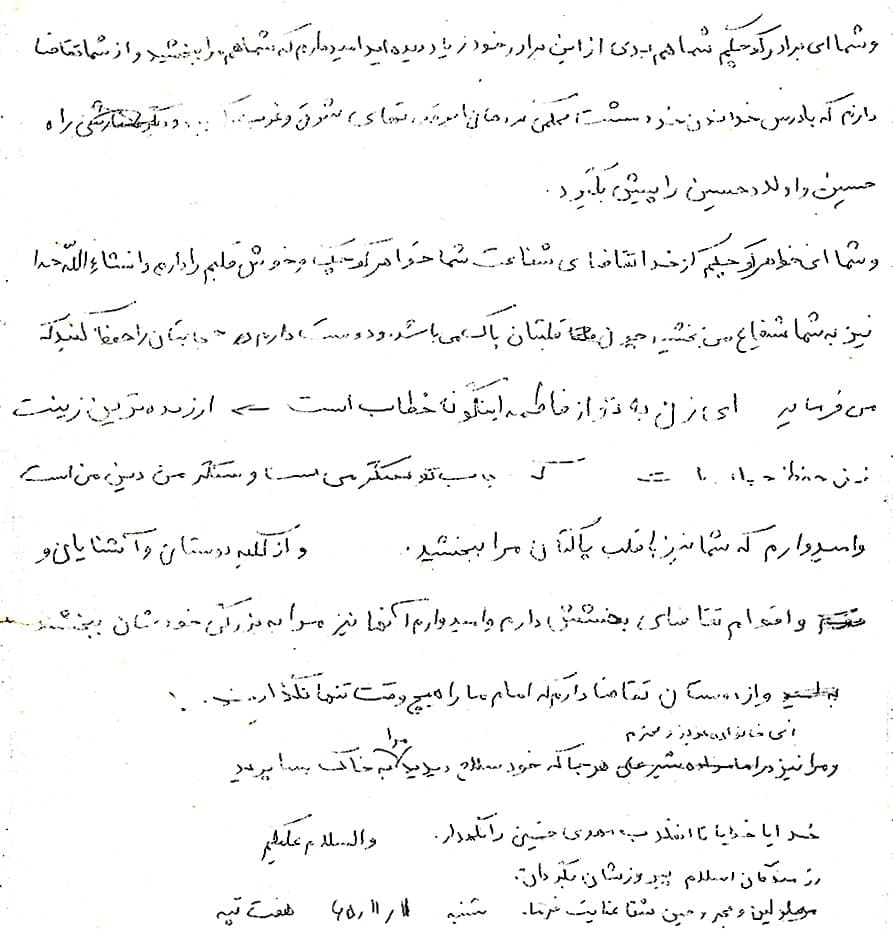 و شما ای برادر کوچکم شما هم بدی از این برادر خود زیاد دیده اید امیدوارم که شما هم مرا ببخشید و از شما تقاضا
دارم که با درس خواندن خود مشت محکمی بر دهان ابرقدرتهای شرق و غرب و دیگر راه
حسین و اولاد حسین را پیش بگیرد.
و شما ای خواهر کوچکم از خدا تقاضای شفاعت شما خواهر کوچک و خوش قلبم را دارم و انشاءالله خدا
نیز به شما شفاع می بخشد، چون قلبتان پاک می باشد. و دوست دارم حجابتان را حفظ کنید که
می فرماید ای زن به تو از فاطمه اینگونه خطاب است ارزنده ترین زینت
زن حفظ حجاب است که حجاب تو سنگر می است و سنگر من دین من است
و امیدوارم که شما نیز با قلب پاکتان مرا ببخشید. و از کلیه دوستان و آشنایان و
و اقوام تقاضای بخشش دارم و امیدوارم آنها نیز مرا به بزرگی خودشان ببخشند
و از دوستان تقاضا دارم که امام ما را هیچ وقت تنها نگذارند.
ای خانواده عزیز و محترم
و مرا نیز در امامزاده شیر علی هر جا که خود صلاح دیدید مرا به خاک بسپارید
خدایا خدایا تا انقلاب مهدی خمینی را نگهدار. والسلام علیکم
رزمندگان اسلام پیروزشان بگردان.
معلولین و مجروحین شفا عنایت فرما. شنبه ۶۵/۱۱/۱۱ هفت تپه